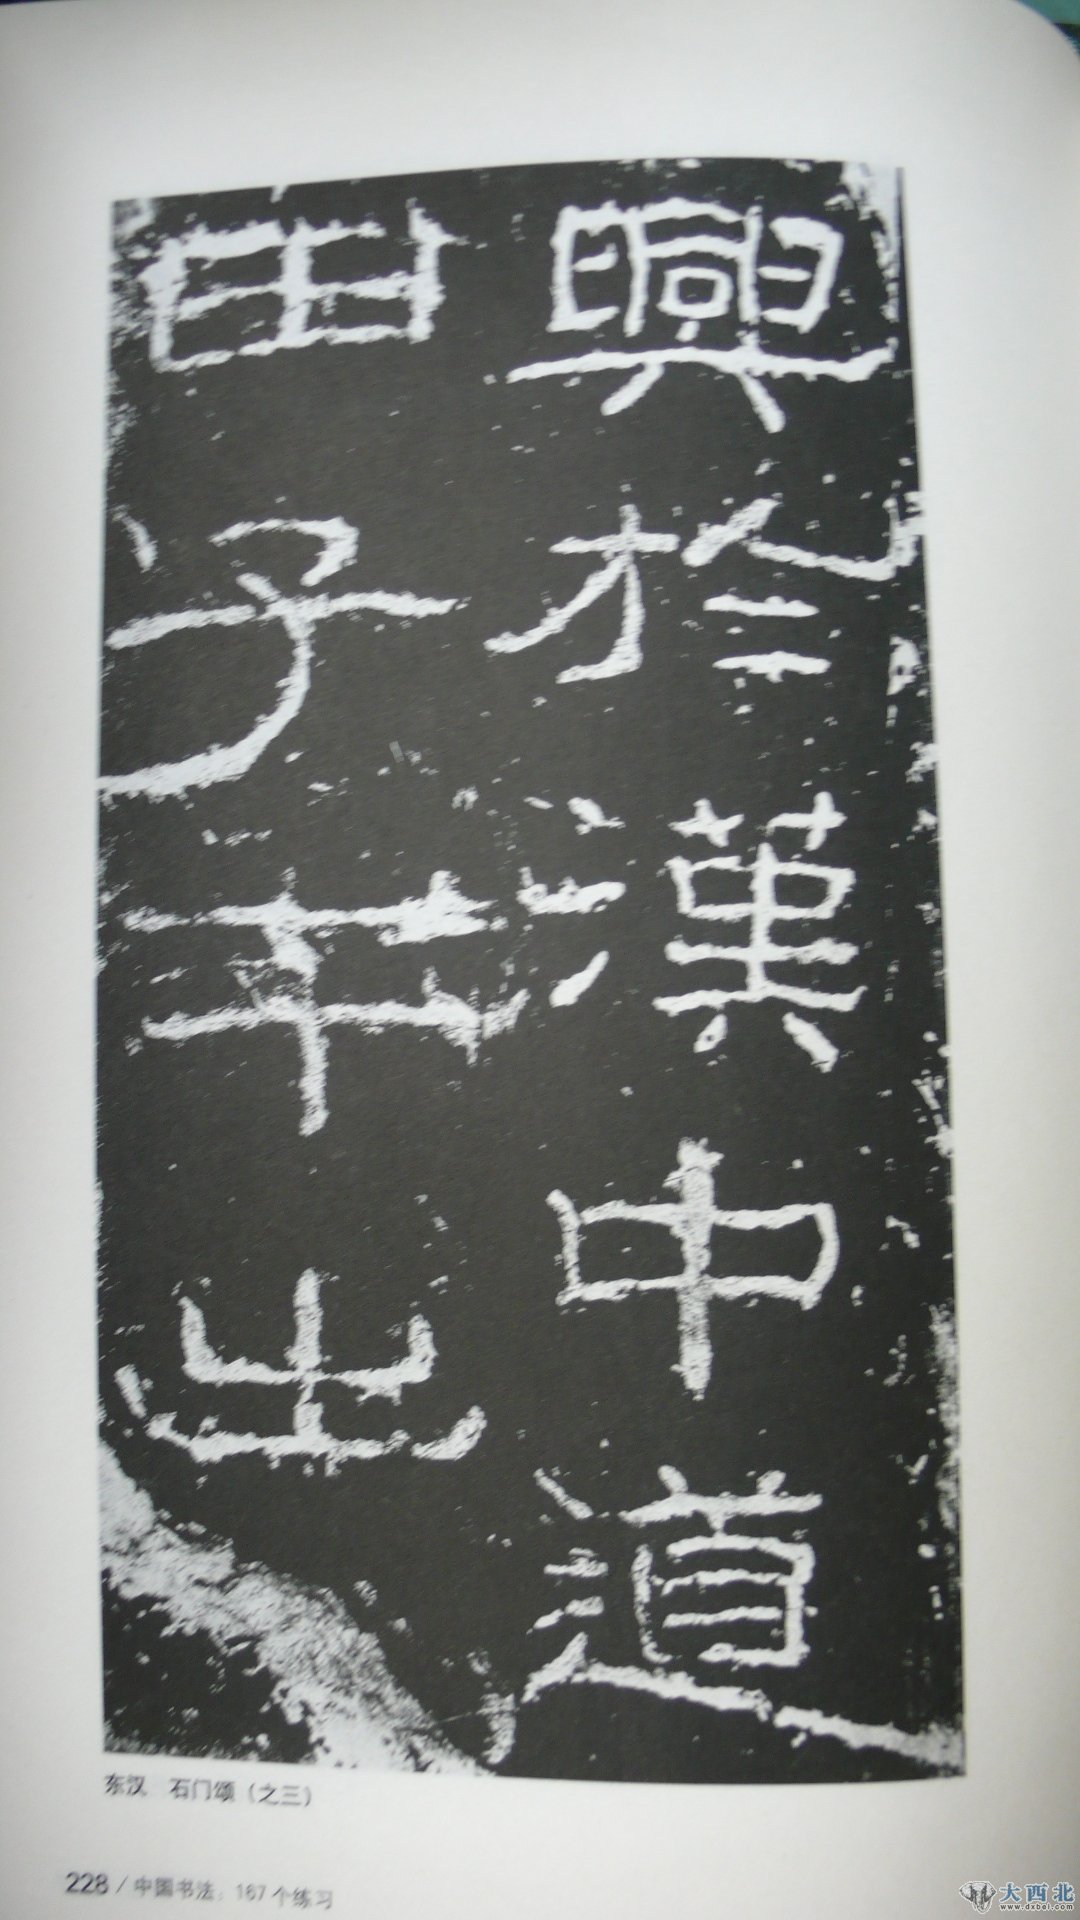 興於漢中道
由子午出
东汉　石门颂（之三）
228 / 中国书法：167个练习
大西北
www.dxbei.com